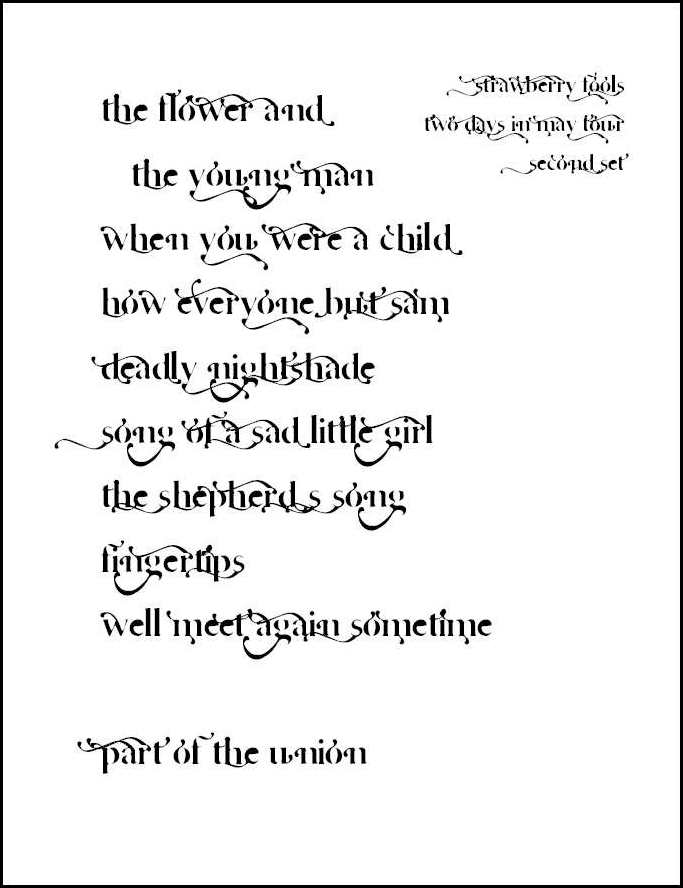 strawberry fools
two days in may tour
second set
the flower and
the young man
when you were a child
how everyone but sam
deadly nightshade
song of a sad little girl
the shepherd,s song
fingertips
well meet again sometime
part of the union